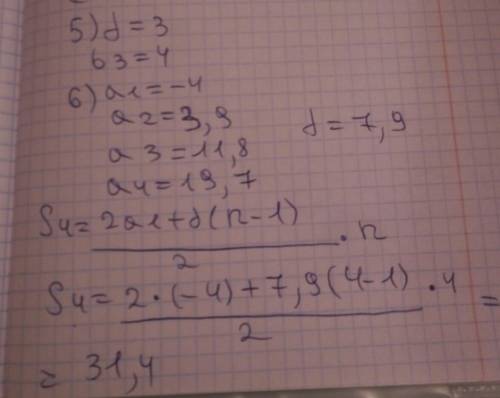 5) d = 3
b3 = 4
6) a1 = -4
a2 = 3,9 d = 7,9
a3 = 11,8
a4 = 19,7
S4 = (2a1 + d(n-1))/2 · n
S4 = (2·(-4) + 7,9(4-1))/2 · 4 =
= 31,4